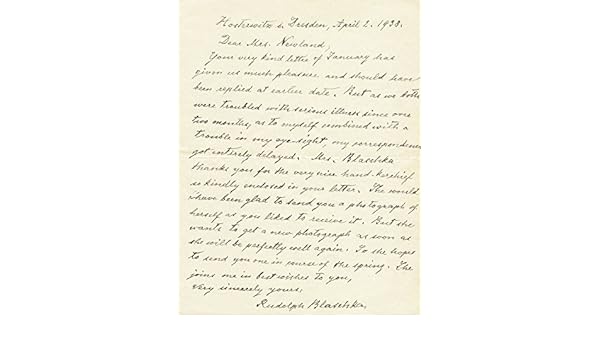 Hosterwitz b. Dresden, April 2. 1938.
Dear Mrs. Newland,
Your very kind letter of January has
given us much pleasure and should have
been replied at earlier date. But as we both
were troubled with serious illness since over
two months, as to myself combined with a
trouble in my eye-sight, my correspondence
got entirely delayed. Mrs. Blaschka
thanks you for the very nice hand-kerchief
so kindly enclosed in your letter. She would
have been glad to send you a photograph of
herself as you liked to receive it. But she
wants to get a new photograph as soon as
she will be perfectly well again. So she hopes
to send you one in course of the spring. She
joins me in best wishes to you,
Very sincerely yours,
Rudolph Blaschka.